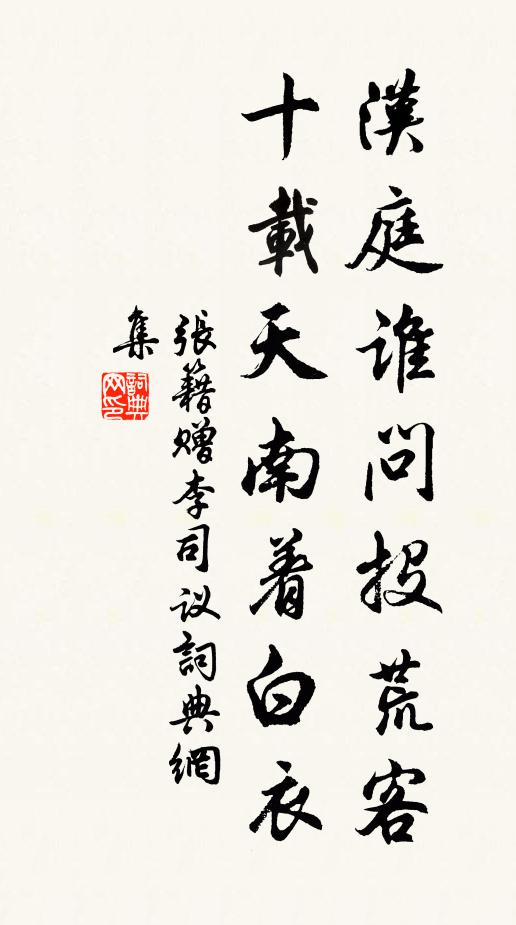 漢庭誰問投荒客
十載天南着白衣
張籍贈李司议詞典網
集
詞典
网印